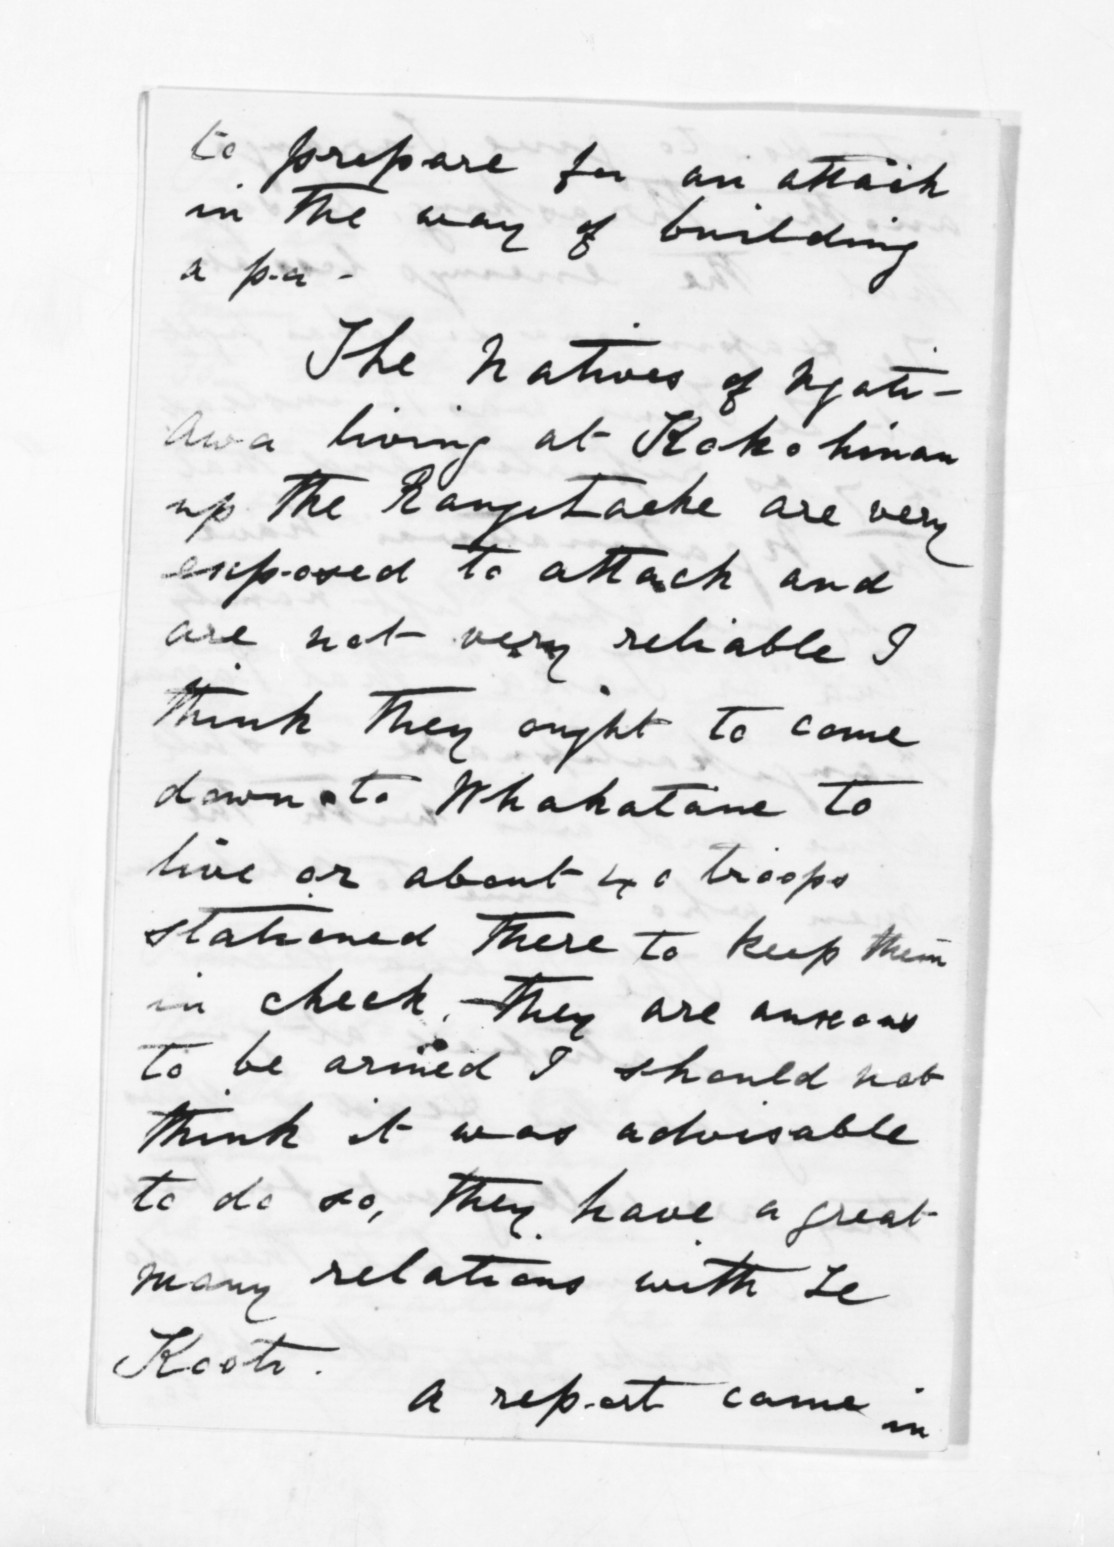 to prepare for an attack
in the way of building
a pa -
The Natives of Ngati-
awa living at Kokohinau
up the Rangitaeke are very
exposed to attack and
are not very reliable I
think they ought to come
down to Whakatane to
live or about 40 troops
stationed there to keep them
in check. they are anxious
to be armed I should not
think it was advisable
to do so, they have a great
many relations with Te
Kooti.
A report came in